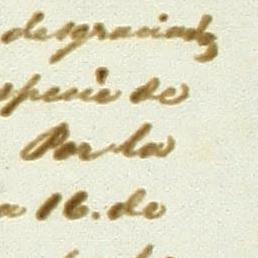 desgraciado
especie de
Por la
a 16. de